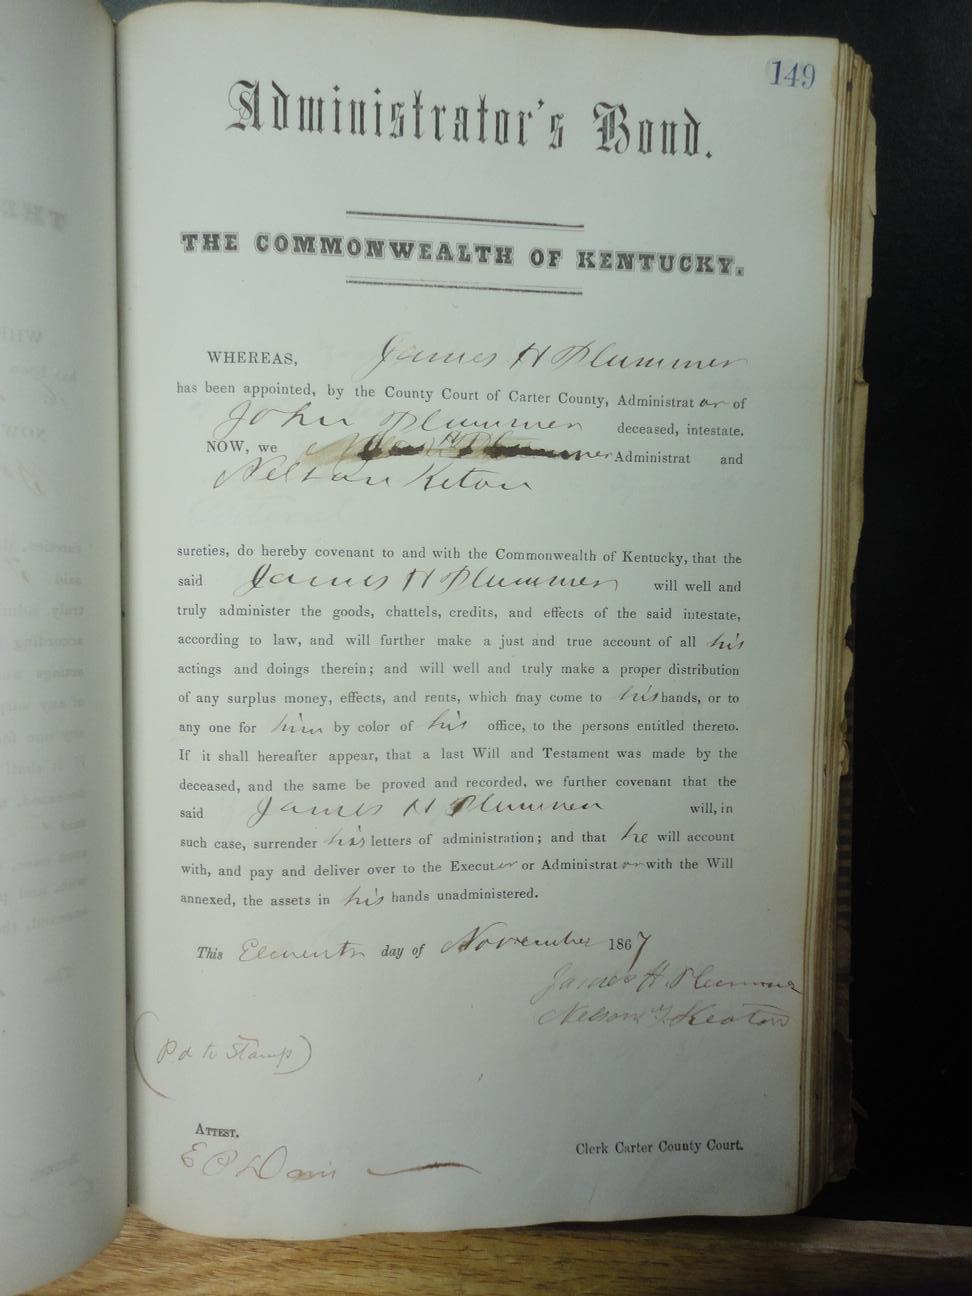 149
Administrator's Bond.
THE COMMONWEALTH OF KENTUCKY.
WHEREAS, James H Plummer
has been appointed, by the County Court of Carter County, Administrator of
John Plummer deceased, intestate.
NOW, we Plummer Administrat and
Nelson Keton
sureties, do hereby covenant to and with the Commonwealth of Kentucky, that the
said James H Plummer will well and
truly administer the goods, chattels, credits, and effects of the said intestate,
according to law, and will further make a just and true account of all his
actings and doings therein; and will well and truly make a proper distribution
of any surplus money, effects, and rents, which may come to his hands, or to
any one for him by color of his office, to the persons entitled thereto.
If it shall hereafter appear, that a last Will and Testament was made by the
deceased, and the same be proved and recorded, we further covenant that the
said James H Plummer will, in
such case, surrender his letters of administration; and that he will account
with, and pay and deliver over to the Executor or Administrator with the Will
annexed, the assets in his hands unadministered.
This Eleventh day of November 1867
James H. Plummer
Nelson Keaton
(Pd te Stamp)
ATTEST.
Clerk Carter County Court.
E P Davis